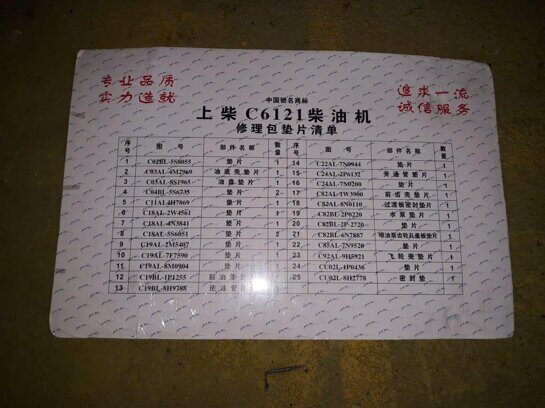 专业品质
实力造就
追求一流
诚信服务
中国驰名商标
上柴C6121柴油机
修理包垫片清单
序号 图号 部件名称 数量 序号 图号 部件名称 数量
1 C02BL-5S8055 垫片 1 14 C22AL-7N0944 垫片 1
2 C03AL-4M2969 油底壳垫片 1 15 C24AL-2P6132 旁通管垫片 1
3 C05AL-8S1965 油盘垫片 1 16 C24AL-7N0200 垫片 1
4 C04BL-5S6735 垫片 17 C82AL-TW3900 前齿壳垫片 1
5 C11AL-4H7869 垫片 1 18 C82AL-8N0110 过渡板密封垫片 1
6 C18AL-2W4561 垫片 1 19 C82BL-2P0220 水泵垫片 1
7 C28AL-4N3841 垫片 20 C82BL-2P-2720 垫片 1
8 C18AL-5S6051 垫片 21 C82BL-6N7887 喷油泵齿轮孔盖板垫片 1
9 C19AL-2M5407 垫片 22 C85AL-7N9520 垫片 1
10 C19AL-7F7590 垫片 23 C92AL-9H5921 飞轮壳垫片 1
11 C19AL-8M0904 垫片 24 CU02L-1P0436 垫片 1
12 C19BL-1P1255 回油管 25 CU02L-8H2778 密封垫 1
13 C19BL-8H9788